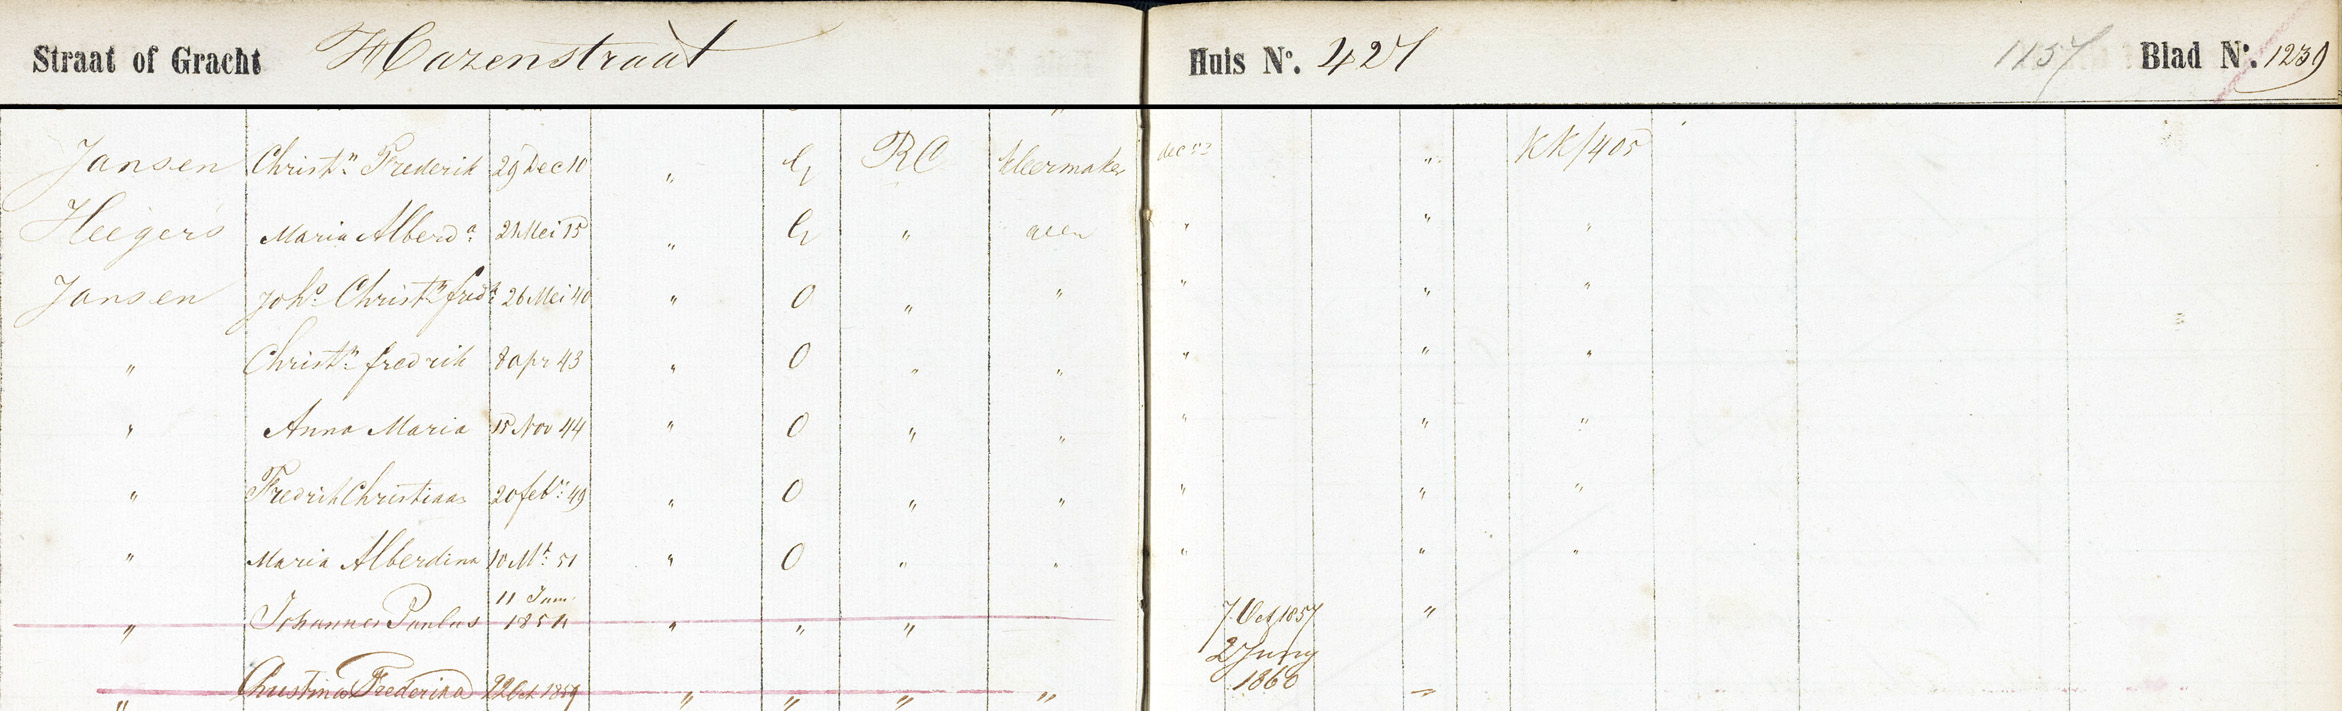 Straat of Gracht Hazenstraat Huis No. 427 1157 Blad No. 1239
Jansen Christn Frederik 29 Dec 10 " G RC kleermaker dec 53 " KK/405
Heegers Maria Alberda 21 Mei 15 " G " geen " " "
Jansen Johs Christn fredk 26 Mei 40 " O " " " " "
" Christn fredrik 8 apr 43 " O " " " " "
" Anna Maria 15 Nov 44 " O " " " " "
" Fredrik Christiaan 20 febr 49 " O " " " " "
" Maria Alberdina 10 Mt 51 " O " " " " "
11 Jun
" Johannes Paulus 1854 " " " 7 Oct 1857 "
2 Juny
" Christina Frederika 22 Oct 1859 " " " " 1860 "